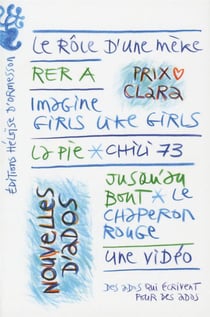 ÉDITIONS HÉLOÏSE D'ORMESSON
LE RÔLE D'UNE MÈRE
RER A
PRIX
CLARA
IMAGINE
GIRLS LIKE GIRLS
LA PIE * CHILI 73
JUSQU'AU
BOUT * LE
CHAPERON
ROUGE
NOUVELLES
D'ADOS
UNE VIDÉO
DES ADOS QUI ÉCRIVENT
POUR DES ADOS